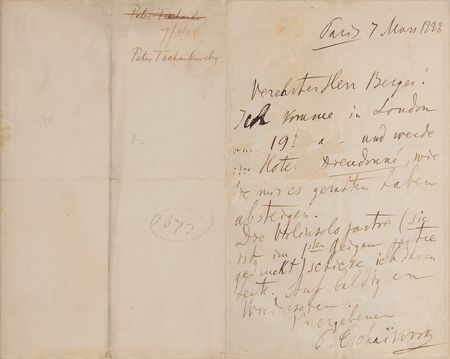 Peter Tschaiko
7/3/88
Peter Tschaikowsky
Paris 7 Mars 1888
Verehrter Herr Berger!
Ich komme in London
am 19! a und werde
im Hotel Dieudonné, wie
Sie mir es gerathen haben
absteigen.
Die Violinsolo partie (sie
ist im 1sten geigen partie
gedruckt) schicke ich Ihnen
heute. Auf baldiges
Wiedersehen.
Ihr ergebener
P. Tschaïkovsky